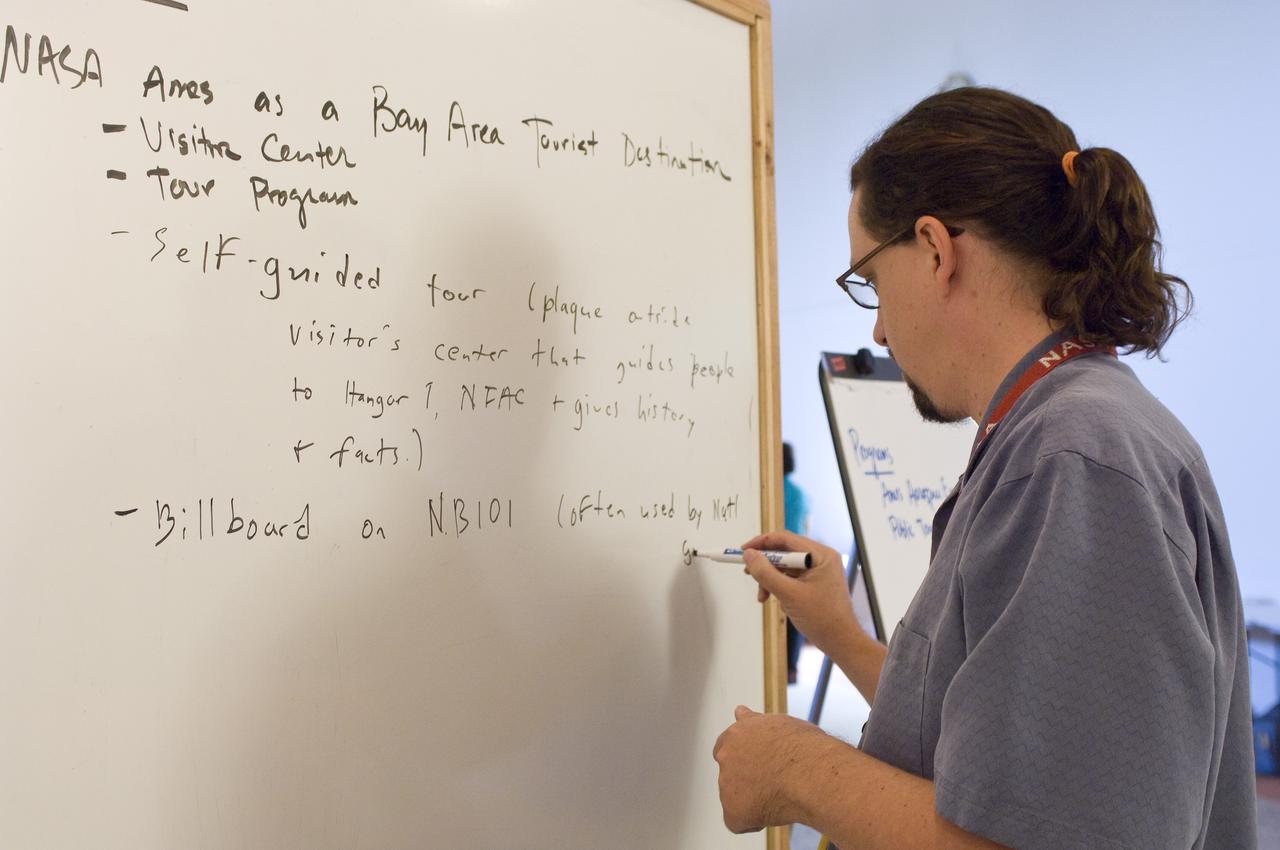 NASA Ames as a Bay Area Tourist Destination
- Visitor Center
- Tour Program
- Self-guided tour (plaque outside
visitor's center that guides people
to Hangar 1, NFAC + gives history
+ facts.)
- Billboard on NB101 (often used by Nat'l
NAS
Programs
Ames
Public